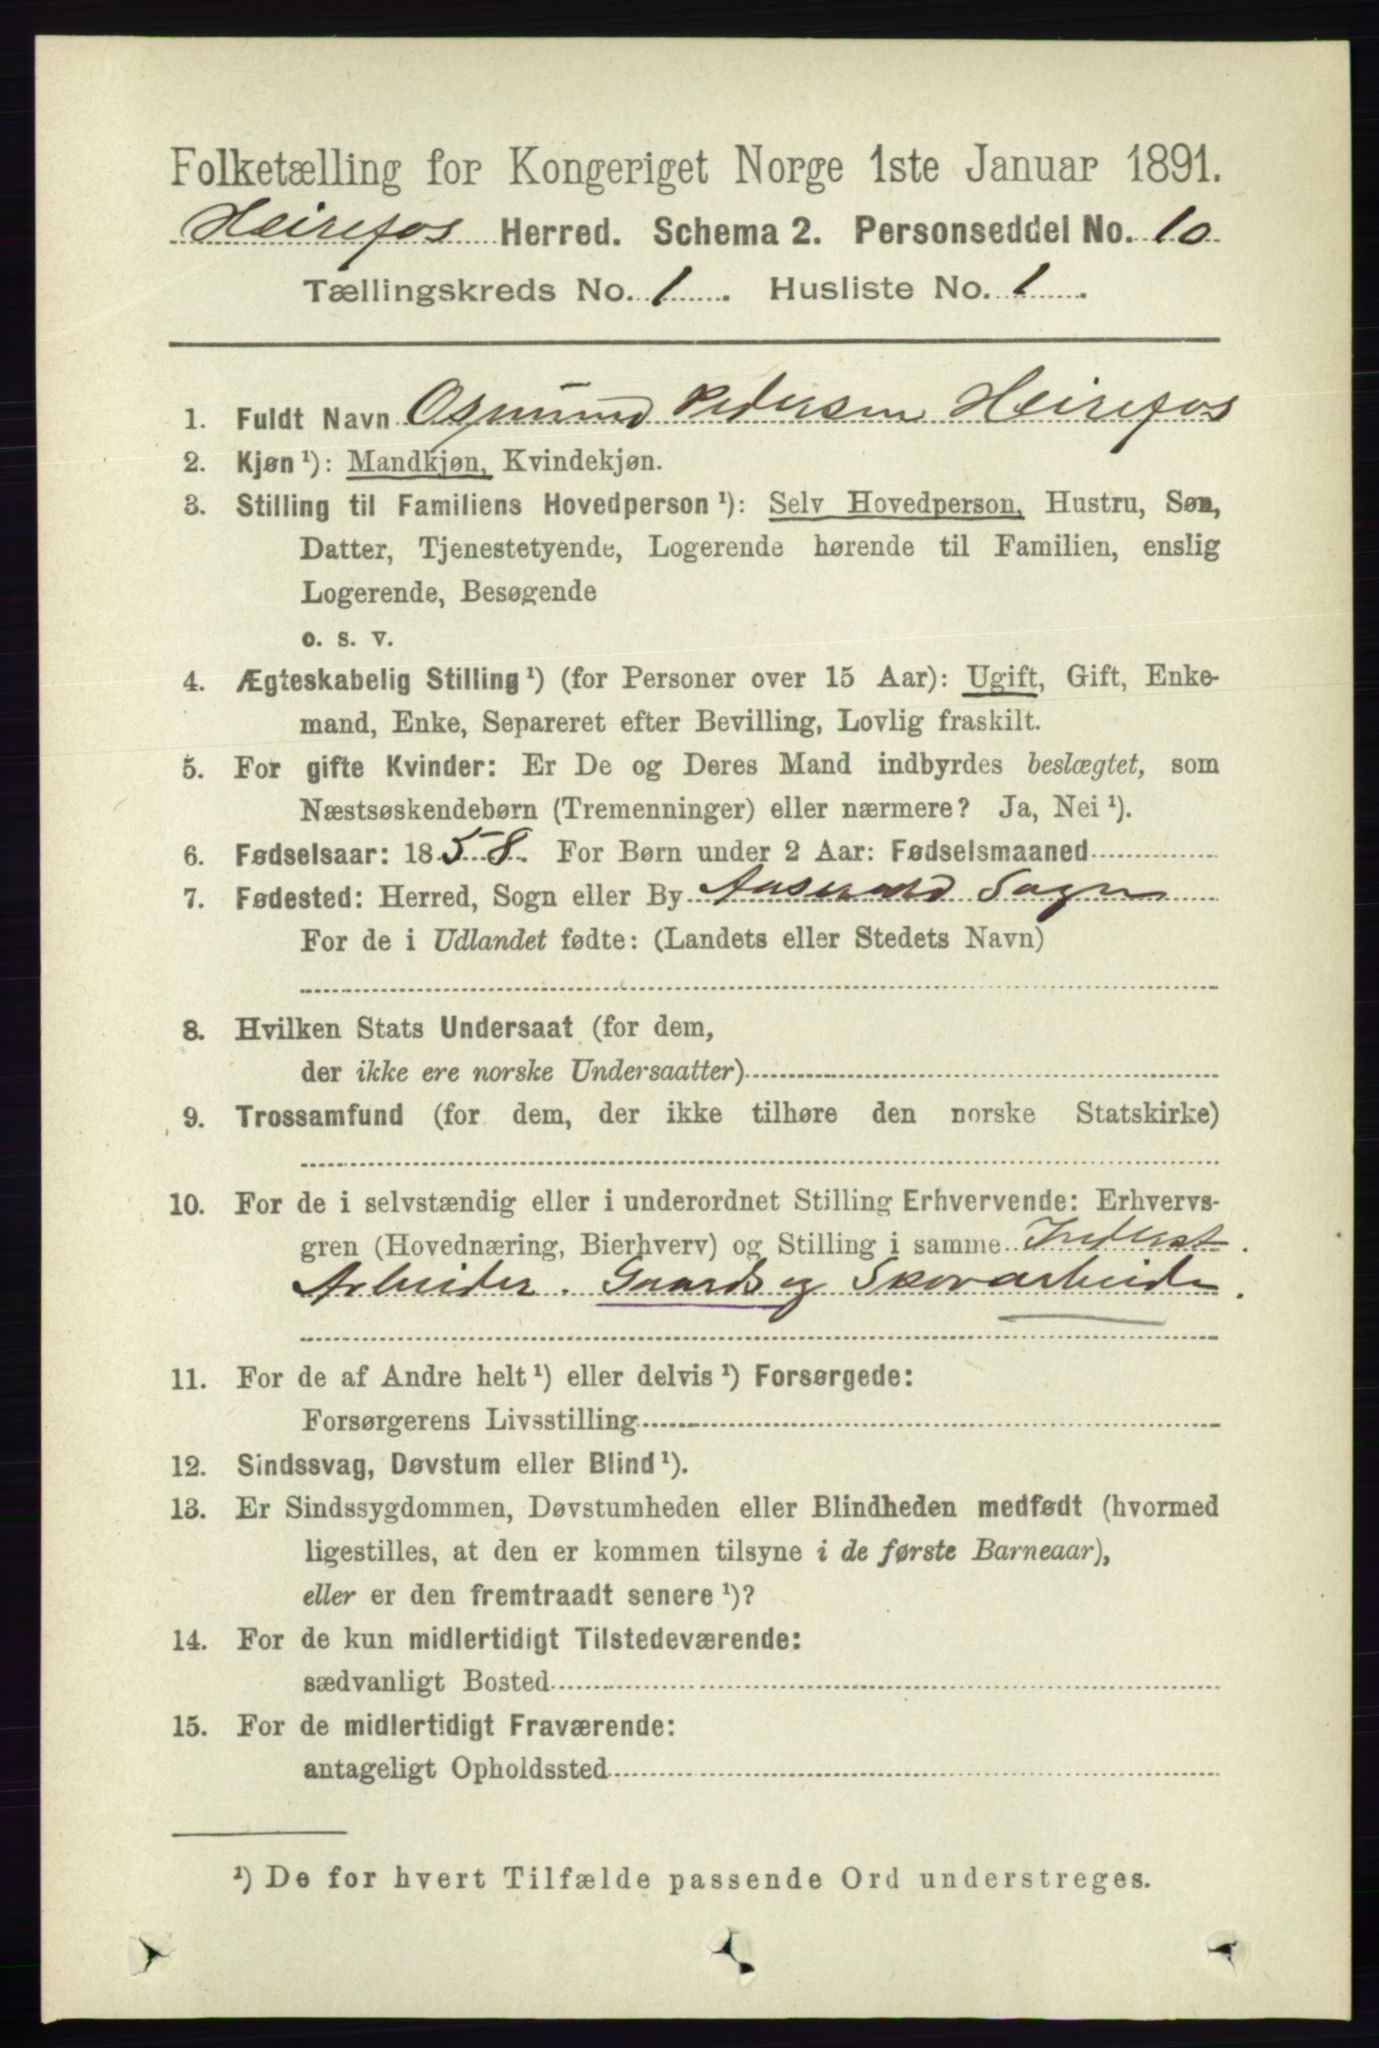 Folketælling for Kongeriget Norge 1ste Januar 1891.
Heirefos Herred. Schema 2. Personseddel No. 10
Tællingskreds No. 1. Husliste No. 1.
1. Fuldt Navn Osmund Pedersen Heirefos
2. Kjøn ¹): Mandkjøn, Kvindekjøn.
3. Stilling til Familiens Hovedperson ¹): Selv Hovedperson, Hustru, Søn,
Datter, Tjenestetyende, Logerende hørende til Familien, enslig
Logerende, Besøgende
o. s. v.
4. Ægteskabelig Stilling ¹) (for Personer over 15 Aar): Ugift, Gift, Enke-
mand, Enke, Separeret efter Bevilling, Lovlig fraskilt.
5. For gifte Kvinder: Er De og Deres Mand indbyrdes beslægtet, som
Næstsøskendebørn (Tremenninger) eller nærmere? Ja, Nei ¹).
6. Fødselsaar: 1858. For Børn under 2 Aar: Fødselsmaaned
7. Fødested: Herred, Sogn eller By Sogn
For de i Udlandet fødte: (Landets eller Stedets Navn)
8. Hvilken Stats Undersaat (for dem,
der ikke ere norske Undersaatter)
9. Trossamfund (for dem, der ikke tilhøre den norske Statskirke)
10. For de i selvstændig eller i underordnet Stilling Erhvervende: Erhvervs-
gren (Hovednæring, Bierhverv) og Stilling i samme
Arbeider. Gaards og Skovarbeide.
11. For de af Andre helt ¹) eller delvis ¹) Forsørgede:
Forsørgerens Livsstilling
12. Sindssvag, Døvstum eller Blind ¹).
13. Er Sindssygdommen, Døvstumheden eller Blindheden medfødt (hvormed
ligestilles, at den er kommen tilsyne i de første Barneaar),
eller er den fremtraadt senere ¹)?
14. For de kun midlertidigt Tilstedeværende:
sædvanligt Bosted
15. For de midlertidigt Fraværende:
antageligt Opholdssted
¹) De for hvert Tilfælde passende Ord understreges.